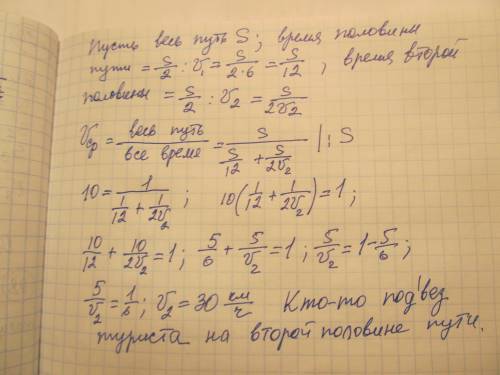 Пусть весь путь S; время половины
пути = S/2 : V₁ = S/(2·6) = S/12, время второй
половины = S/2 : V₂ = S/(2V₂)
Vср = весь путь/все время = S/(S/12 + S/(2V₂)) |: S
10 = 1/(1/12 + 1/(2V₂)); 10(1/12 + 1/(2V₂)) = 1;
10/12 + 10/(2V₂) = 1; 5/6 + 5/V₂ = 1; 5/V₂ = 1 - 5/6;
5/V₂ = 1/6; V₂ = 30 км/ч Кто-то подвез
туриста на второй половине пути.